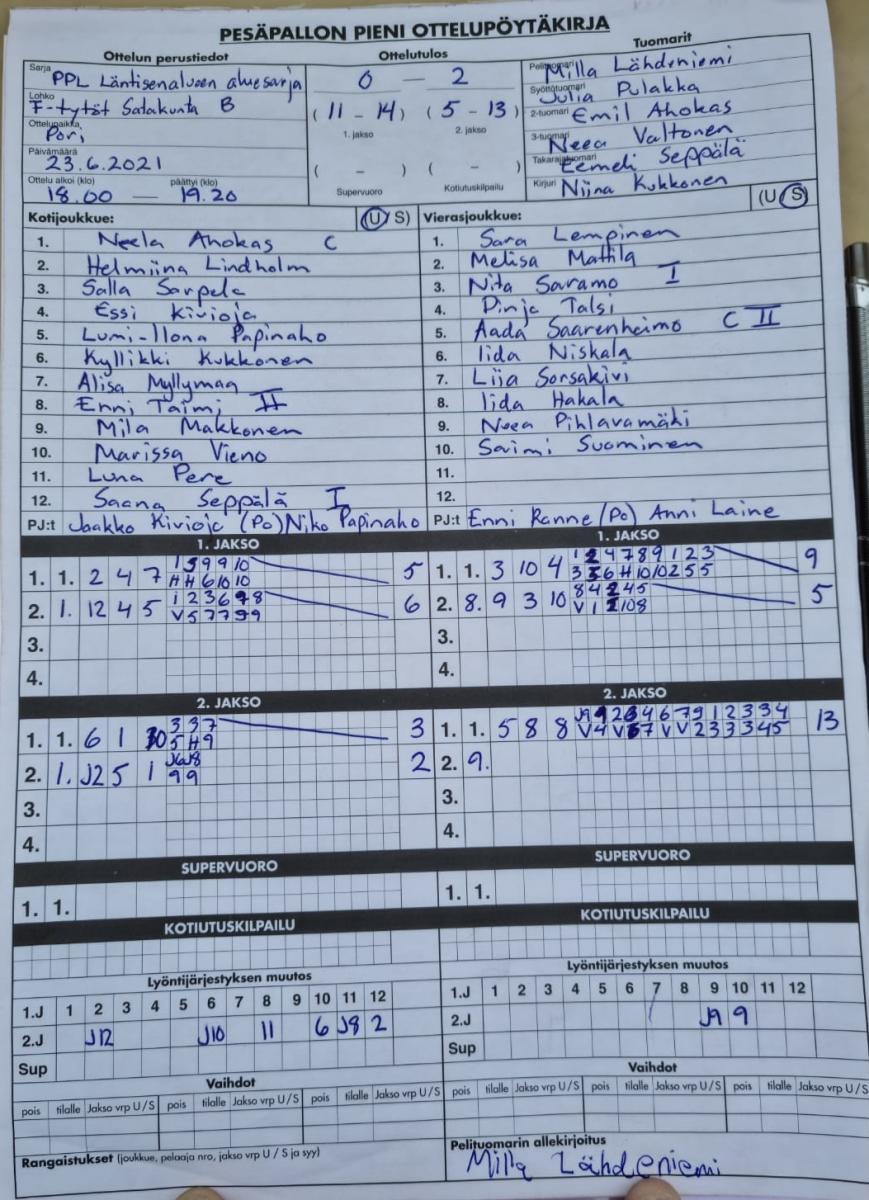 PESÄPALLON PIENI OTTELUPÖYTÄKIRJA
Ottelun perustiedot
Sarja PPL Läntisenalueen aluesarja
Lohko F-tytöt Satakunta B
Ottelupaikka Pori
Päivämäärä 23.6.2021
Ottelu alkoi (klo) päättyi (klo)
18.00 — 19.20
Ottelutulos
0 — 2
(11 - 14) (5 - 13)
1. jakso 2. jakso
( - ) ( - )
Supervuoro Kotiutuskilpailu
Tuomarit
Pelituomari Milla Lähdeniemi
Syöttötuomari Julia Pulakka
2-tuomari Emil Ahokas
3-tuomari Neea Valtonen
Takarajatuomari Eemeli Seppälä
Kirjuri Niina Kukkonen
Kotijoukkue: (U S)
1. Neela Ahokas C
2. Helmiina Lindholm
3. Salla Sarpela
4. Essi Kivioja
5. Lumi-Ilona Papinaho
6. Kyllikki Kukkonen
7. Alisa Myllymaa
8. Enni Taimi II
9. Mila Makkonen
10. Marissa Vieno
11. Luna Pere
12. Saana Seppälä I
PJ:t Jaakko Kivioja (PO) Niko Papinaho
Vierasjoukkue: (U S)
1. Sara Lempinen
2. Melisa Mattila
3. Nita Saramo I
4. Pinja Talsi
5. Aada Saarenheimo C II
6. Iida Niskala
7. Liia Sorsakivi
8. Iida Hakala
9. Neea Pihlavamäki
10. Saimi Suominen
11.
12.
PJ:t Enni Ranne (PO) Anni Laine
1. JAKSO
1. 1. 2 4 7 5
2. 1. 12 4 5 6
3.
4.
1. JAKSO
1. 1. 3 10 4 9
2. 8. 9 3 10 5
3.
4.
2. JAKSO
1. 1. 6 1 3
2. 1. J2 5 1 2
3.
4.
2. JAKSO
1. 1. 5 8 8 13
2. 9.
3.
4.
SUPERVUORO
1. 1.
SUPERVUORO
1. 1.
KOTIUTUSKILPAILU
KOTIUTUSKILPAILU
Lyöntijärjestyksen muutos
1.J 1 2 3 4 5 6 7 8 9 10 11 12
2.J J12 J10 11 6 J8 2
Sup
Lyöntijärjestyksen muutos
1.J 1 2 3 4 5 6 7 8 9 10 11 12
2.J J9 9
Sup
Vaihdot
pois tilalle Jakso vrp U/S pois tilalle Jakso vrp U/S pois tilalle Jakso vrp U/S
Vaihdot
pois tilalle Jakso vrp U/S pois tilalle Jakso vrp U/S pois tilalle Jakso vrp U/S
Rangaistukset (joukkue, pelaaja nro, jakso vrp U / S ja syy)
Pelituomarin allekirjoitus
Milla Lähdeniemi